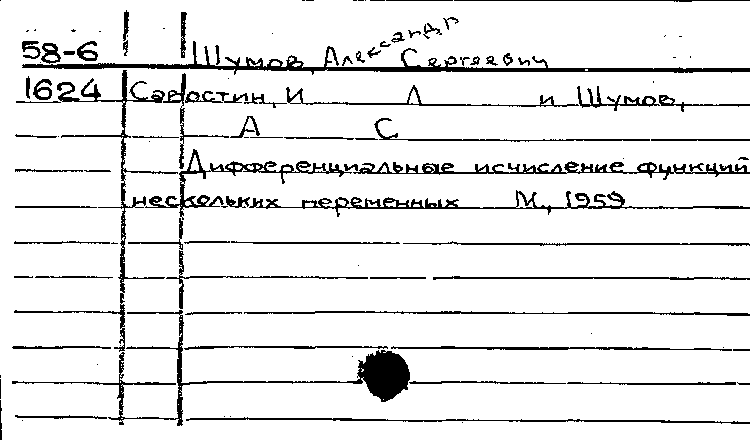 58-6 Шумов, Александр Сергеевич
1624 Савостин, И Л и Шумов,
А С
Дифференциальные исчисление функций
нескольких переменных М., 1959